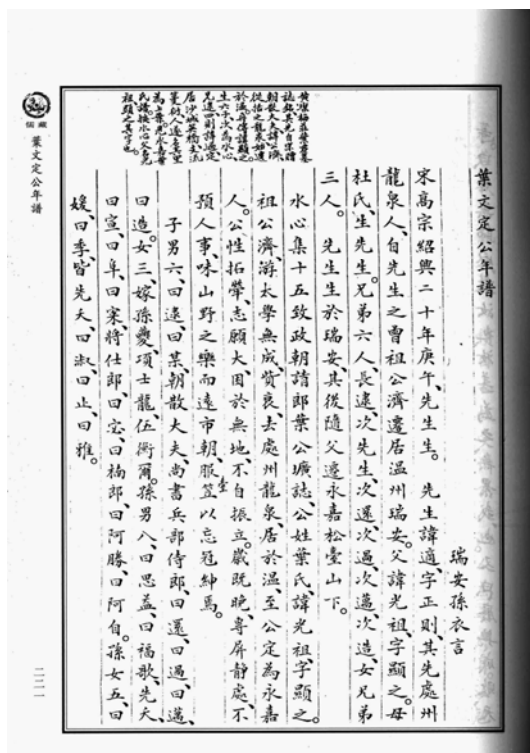 葉文定公年譜
瑞安孫衣言
宋高宗紹興二十年庚午、先生生。先生諱適、字正則、其先處州
龍泉人、自先生之曾祖公濟遷居温州瑞安。父諱光祖、字顯之。母
杜氏、生先生。兄弟六人、長逮、次先生、次還、次過、次邁、次造、女兄弟
三人。先生生於瑞安、其後隨父遷永嘉松臺山下。
水心集十五致政朝請郎葉公壙誌、公姓葉氏、諱光祖、字顯之。
祖公濟、游太學無成、貲衰去處州龍泉、居於温、至公定為永嘉
人。公性拓犖、志願大、困於無地、不自振立。歲既晚、專屏靜處、不
預人事、味山野之樂而遠市朝、服臺笠以忘冠紳焉。
子男六、曰逮、曰某、朝散大夫、尚書兵部侍郎、曰還、曰過、曰邁、
曰造。女三、嫁孫夔、項士龍、伍衡爾。孫男八、曰思益、曰福歌、先夭、
曰宣、曰阜、曰寀、將仕郎、曰宓、曰楠郎、曰阿勝、曰阿自。孫女五、曰
媛、曰季、皆先夭、曰淑、曰止、曰雅。
朝散大夫諱公濟
之龍泉始遷
於溫再傳諱顯之
生六子次為水心
居沙城英橋支流
蔓衍人遂名其里
祖顯之其字也
儒藏
葉文定公年譜
二二一